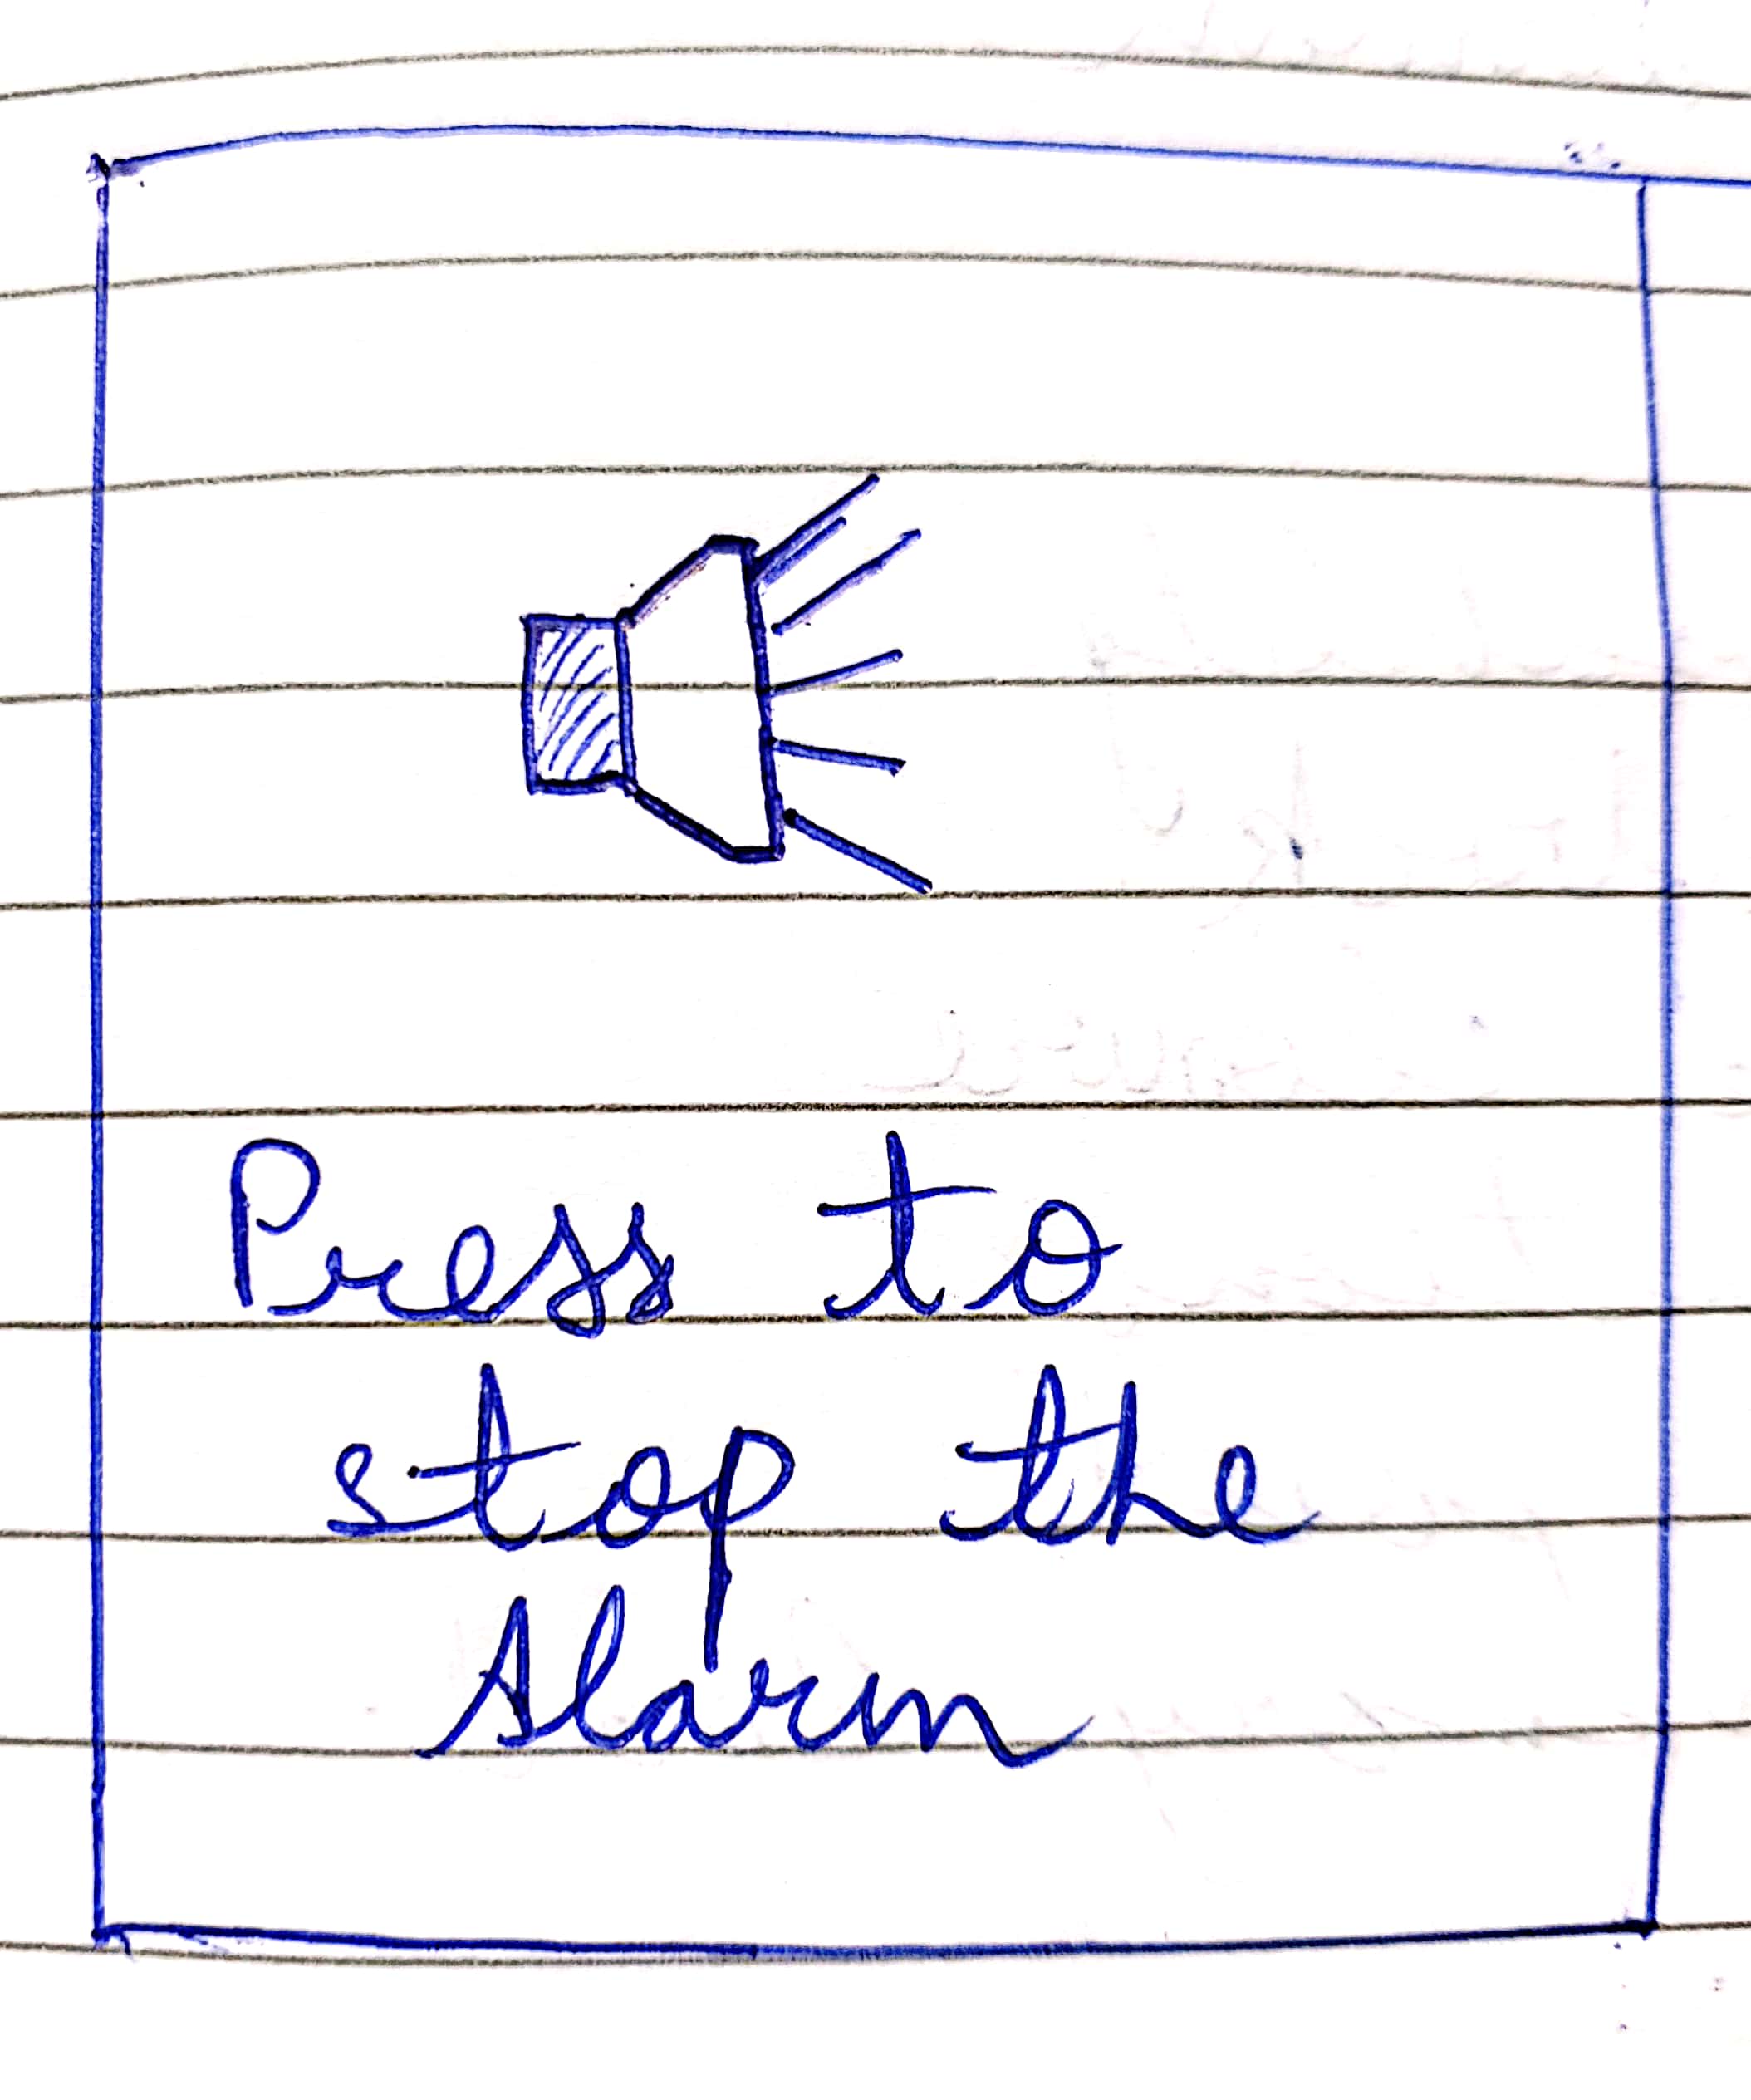 Press to
stop the
Alarm